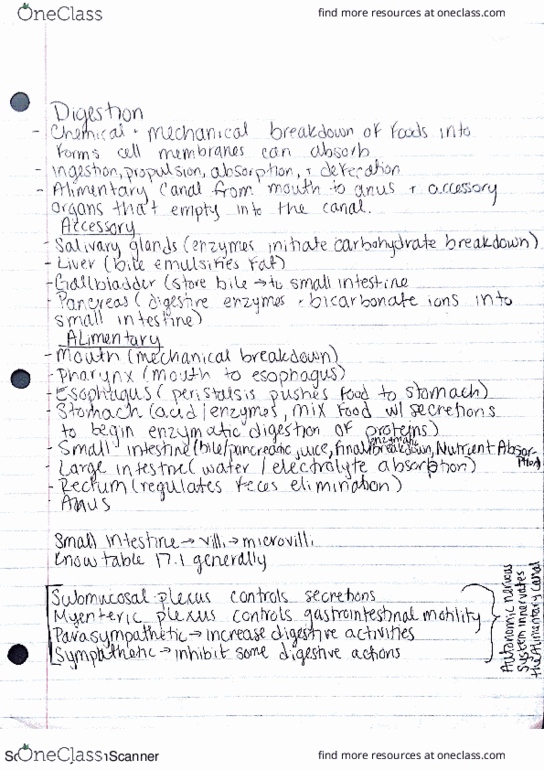 OneClass
find more resources at oneclass.com
Digestion
- Chemical + mechanical breakdown of foods into
forms cell membranes can absorb
- ingestion, propulsion, absorption, + defecation
- Alimentary Canal from mouth to anus + accessory
organs that empty into the canal.
Accessory
- Salivary glands (enzymes initiate carbohydrate breakdown)
- Liver (bile emulsifies fat)
- Gallbladder (store bile → to small intestine
- Pancreas (digestive enzymes + bicarbonate ions into
small intestine)
Alimentary
- Mouth (mechanical breakdown)
- Pharynx (mouth to esophagus)
- Esophagus (peristalsis pushes food to stomach)
- Stomach (acid/enzymes, mix food w/ secretions
to begin enzymatic digestion of proteins)
- Small intestine (bile/pancreatic juice, final enzymatic breakdown, Nutrient Absorption)
- Large intestine (water/electrolyte absorption)
- Rectum (regulates feces elimination)
- Anus
Small intestine → villi → microvilli
Know table 17.1 generally
Submucosal plexus controls secretions
Myenteric plexus controls gastrointestinal motility
Parasympathetic → increase digestive activities
Sympathetic → inhibit some digestive actions
Autonomic nervous
System innervates
the Alimentary Canal
OneClass
Scanner
find more resources at oneclass.com